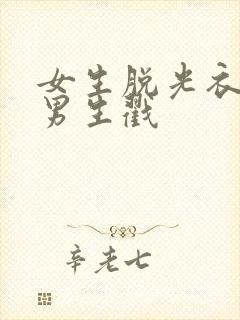 女生脱光衣
男生戳
辛老七